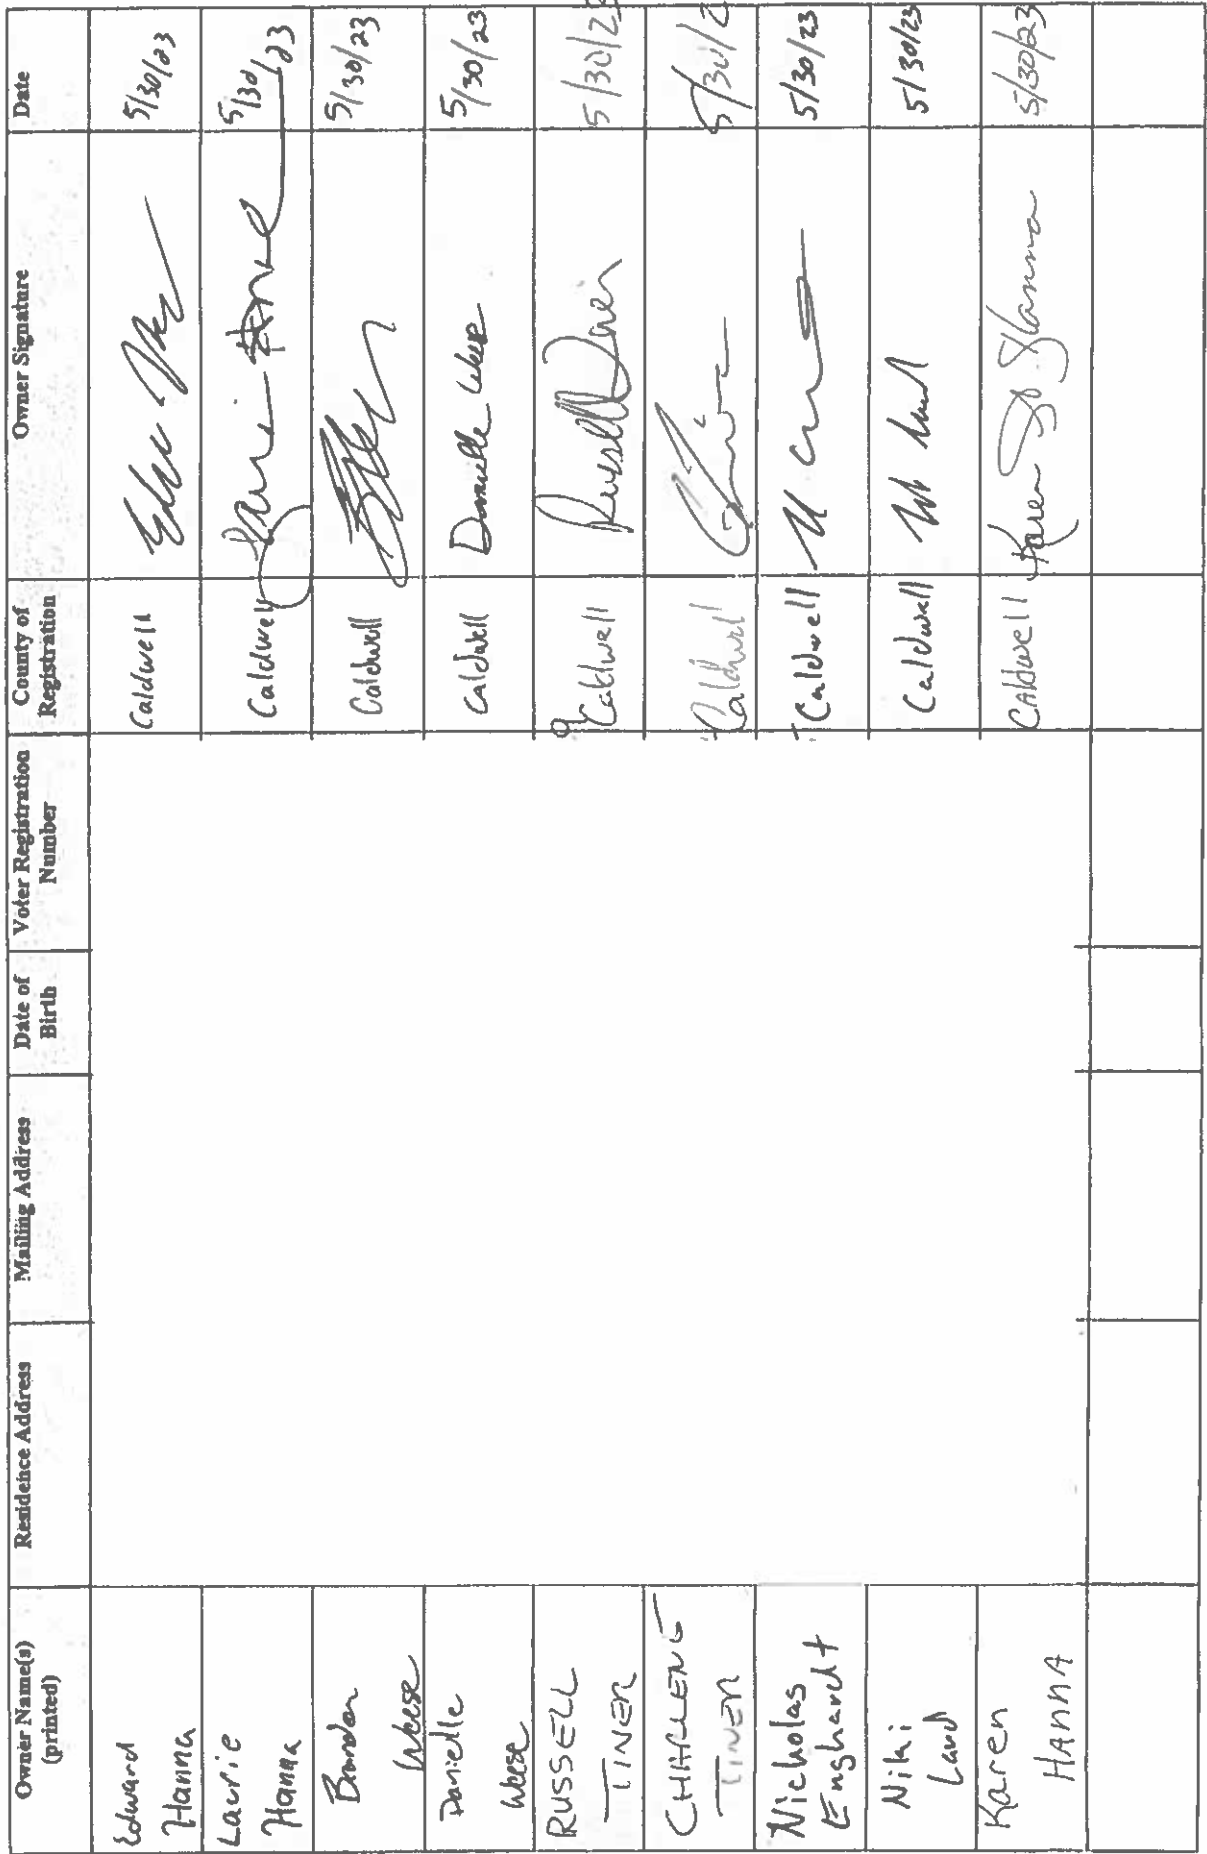 Owner Name(s)
(printed)
Residence Address
Mailing Address
Date of
Birth
Voter Registration
Number
County of
Registration
Owner Signature
Date
Edward
Hanna
Caldwell
5/30/23
Laurie
Hanna
Caldwell
5/30/23
Brandon
Weese
Caldwell
5/30/23
Danielle
Weese
Caldwell
Danielle Weese
5/30/23
RUSSELL
TINER
Caldwell
Russell Tiner
5/30/23
CHARLENE
TINER
Caldwell
5/30/2
Nicholas
Enghardt
Caldwell
5/30/23
Niki
Land
Caldwell
5/30/23
Karen
HANNA
CAldwell
Karen Hanna
5/30/23